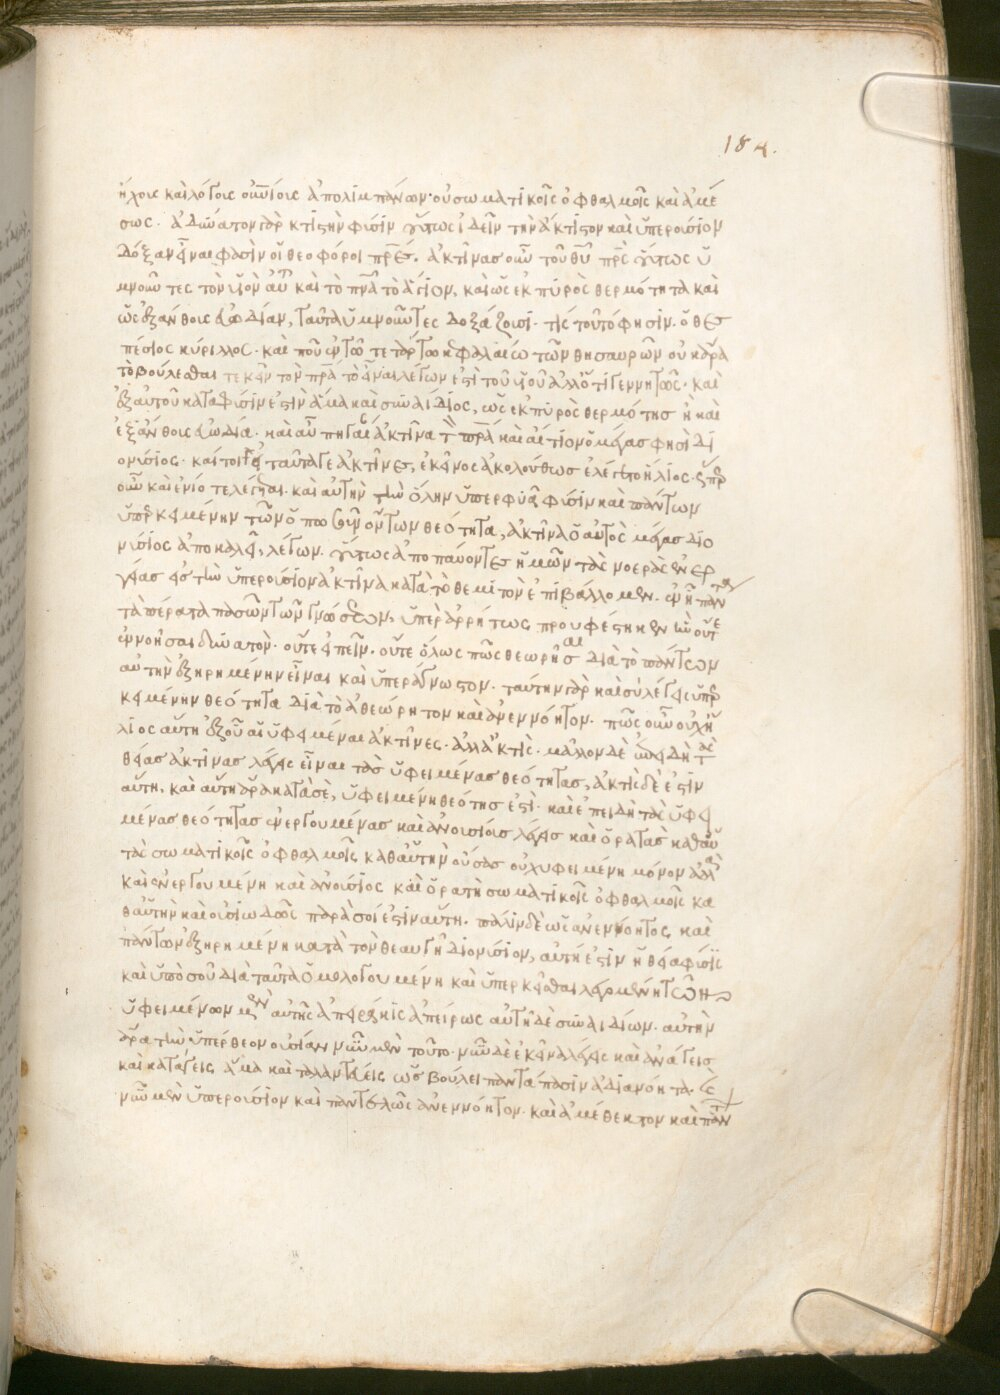 184.
ἤχοις καὶ λόγοις οὐνίοις ἀπολιμπάνων· οὐ σωματικοῖς ὀφθαλμοῖς καὶ ἀμέ
σως. ἀδύνατον γὰρ κτιστὴν φύσιν οὕτως ἰδεῖν τὴν ἄκτιστον καὶ ὑπερούσιον
δόξαν εἶναι φασὶν οἱ θεοφόροι πρες. ἀκτῖνας οὖν τοῦ θυ πρς οὕτως ὑ
μνοῦντες τὸν υἱὸν αὐ καὶ τὸ πνα τὸ ἅγιον, καὶ ὡς ἐκ πυρὸς θερμότητα καὶ
ὡς ἐξ ἄνθους εὐωδίαν, ταῦτα ὑμνοῦντες δοξάζουσι. τίς τοῦτό φησιν. ὁ θε
σπέσιος κύριλλος. καὶ που ἐν τῶ τετάρτω κεφαλαίω τῶν θησαυρῶν οὐ παρὰ
τὸ βούλεσθαι τεκεῖν τὸν πρα τὸ εἶναι λέγων ἐστὶ τοῦ υἱοῦ ἀλλ' ὅτι γεννητῶς. καὶ
ἐξ αὐτοῦ κατὰ φύσιν ἐστὶν ἅμα καὶ συναΐδιος, ὡς ἐκ πυρὸς θερμότης ἢ καὶ
ἐξ ἄνθους εὐωδία. καὶ αὖ πηγαίαν ἀκτῖνα τὸν πρα καὶ αἴτιον ὁ μέγας φησὶ δι
ονύσιος. καίτοι εἰ ταῦτά γε ἀκτῖνες, ἐκεῖνος ἀκολούθως ἐλέγετο ἥλιος. ὥσπερ
οὖν καὶ ἐνίοτε λέγεται. καὶ αὐτὴν τὴν ὅλην ὑπερφυᾶ φύσιν καὶ πάντων
ὑπερκειμένην τῶν ὁπωσοῦν ὄντων θεότητα, ἀκτῖνα ὁ αὐτὸς μέγας διο
νύσιος ἀποκαλεῖ, λέγων. οὕτως ἀποπαύοντες ἡμῶν τὰς νοερὰς ἐνερ
γείας εἰς τὴν ὑπερούσιον ἀκτῖνα κατὰ τὸ θεμιτὸν ἐπιβάλλομεν. ἐν ᾗ πάντα
τὰ πέρατα πασῶν τῶν γνώσεων, ὑπὲρ ἀρρήτως προϋφέστηκεν ἣν οὔτε
ἐννοῆσαι δυνατὸν. οὔτε εἰπεῖν. οὔτε ὅλως πῶς θεωρῆσαι διὰ τὸ πάντων
αὐτὴν ἐξηρημένην εἶναι καὶ ὑπεράγνωστον. ταύτην γὰρ καὶ σὺ λέγεις ὑπερ
κειμένην θεότητα διὰ τὸ ἀθεώρητον καὶ ἀνεννόητον. πῶς οὖν οὐχ ἥ
λιος αὕτη ἐξ οὗ αἱ ὑφειμέναι ἀκτῖνες. ἀλλ' ἀκτὶς. μᾶλλον δὲ ἐπειδὴ τὰς
θείας ἀκτῖνας λέγεις εἶναι τὰς ὑφειμένας θεότητας, ἀκτὶς δέ ἐστιν
αὕτη, καὶ αὕτη ἄρα κατὰ σὲ, ὑφειμένη θεότης ἐστὶ. καὶ ἐπειδὴ τὰς ὑφει
μένας θεότητας ἐνεργουμένας καὶ ἀνουσίους λέγεις καὶ ὁρατὰς καθ' αὑ
τὰς σωματικοῖς ὀφθαλμοῖς καθ' αὑτὴν οὔσας οὐχ ὑφειμένη μόνον ἀλλὰ
καὶ ἐνεργουμένη καὶ ἀνούσιος καὶ ὁρατὴ σωματικοῖς ὀφθαλμοῖς κα
θ' αὑτὴν καὶ οὐσιωδῶς παρὰ σοί ἐστιν αὕτη. πάλιν δὲ ὡς ἀνεννόητος καὶ
πάντων ἐξηρημένη κατὰ τὸν θεαυγῆ διονύσιον, αὐτή ἐστιν ἡ θεία φύσις
καὶ ὑπὸ σοῦ διὰ ταῦτα ὁμολογουμένη καὶ ὑπερκεῖσθαι λεγομένη τῶν
ὑφειμένων μὲν αὐτῆς ἀπειράκις ἀπείρως αὐτῆ δὲ συναϊδίων. αὐτὴν
ἄρα τὴν ὑπέρθεον οὐσίαν νῦν μὲν τοῦτο. νῦν δὲ ἐκεῖνα λέγεις καὶ ἀνάγεις
καὶ κατάγεις ἅμα καὶ ταλαντεύεις ὡς βούλει πάντα πᾶσιν ἀδιανόητα.
νῦν μὲν ὑπερούσιον καὶ παντελῶς ἀνεννόητον. καὶ ἀμέθεκτον καὶ παν